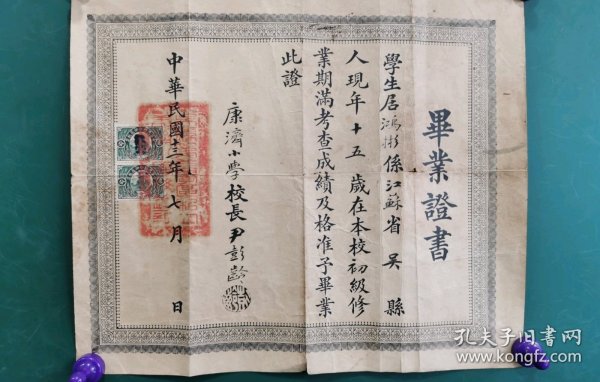 畢業證書
學生居鴻彬係江蘇省吳縣
人現年十五歲在本校初級修
業期滿考查成績及格准予畢業
此證
康濟小學校長尹彭齡
中華民國十三年七月 日
孔夫子旧书网
www.kongfz.com